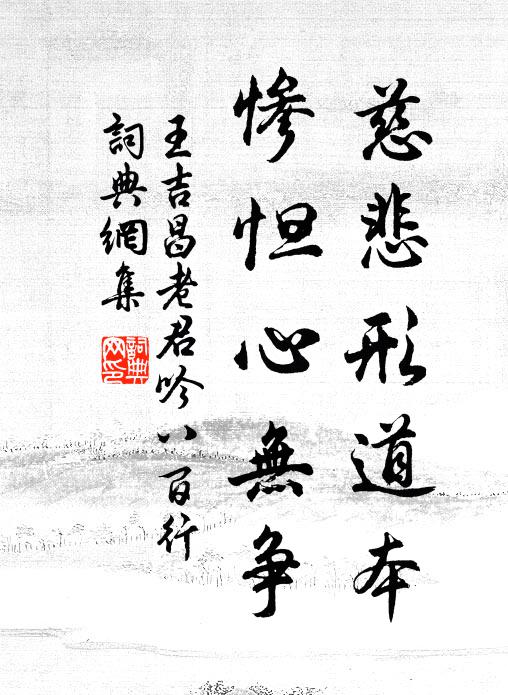 慈悲形道本
惨怛心無争
王吉昌老君吟八百行
詞典網集
詞典
网印